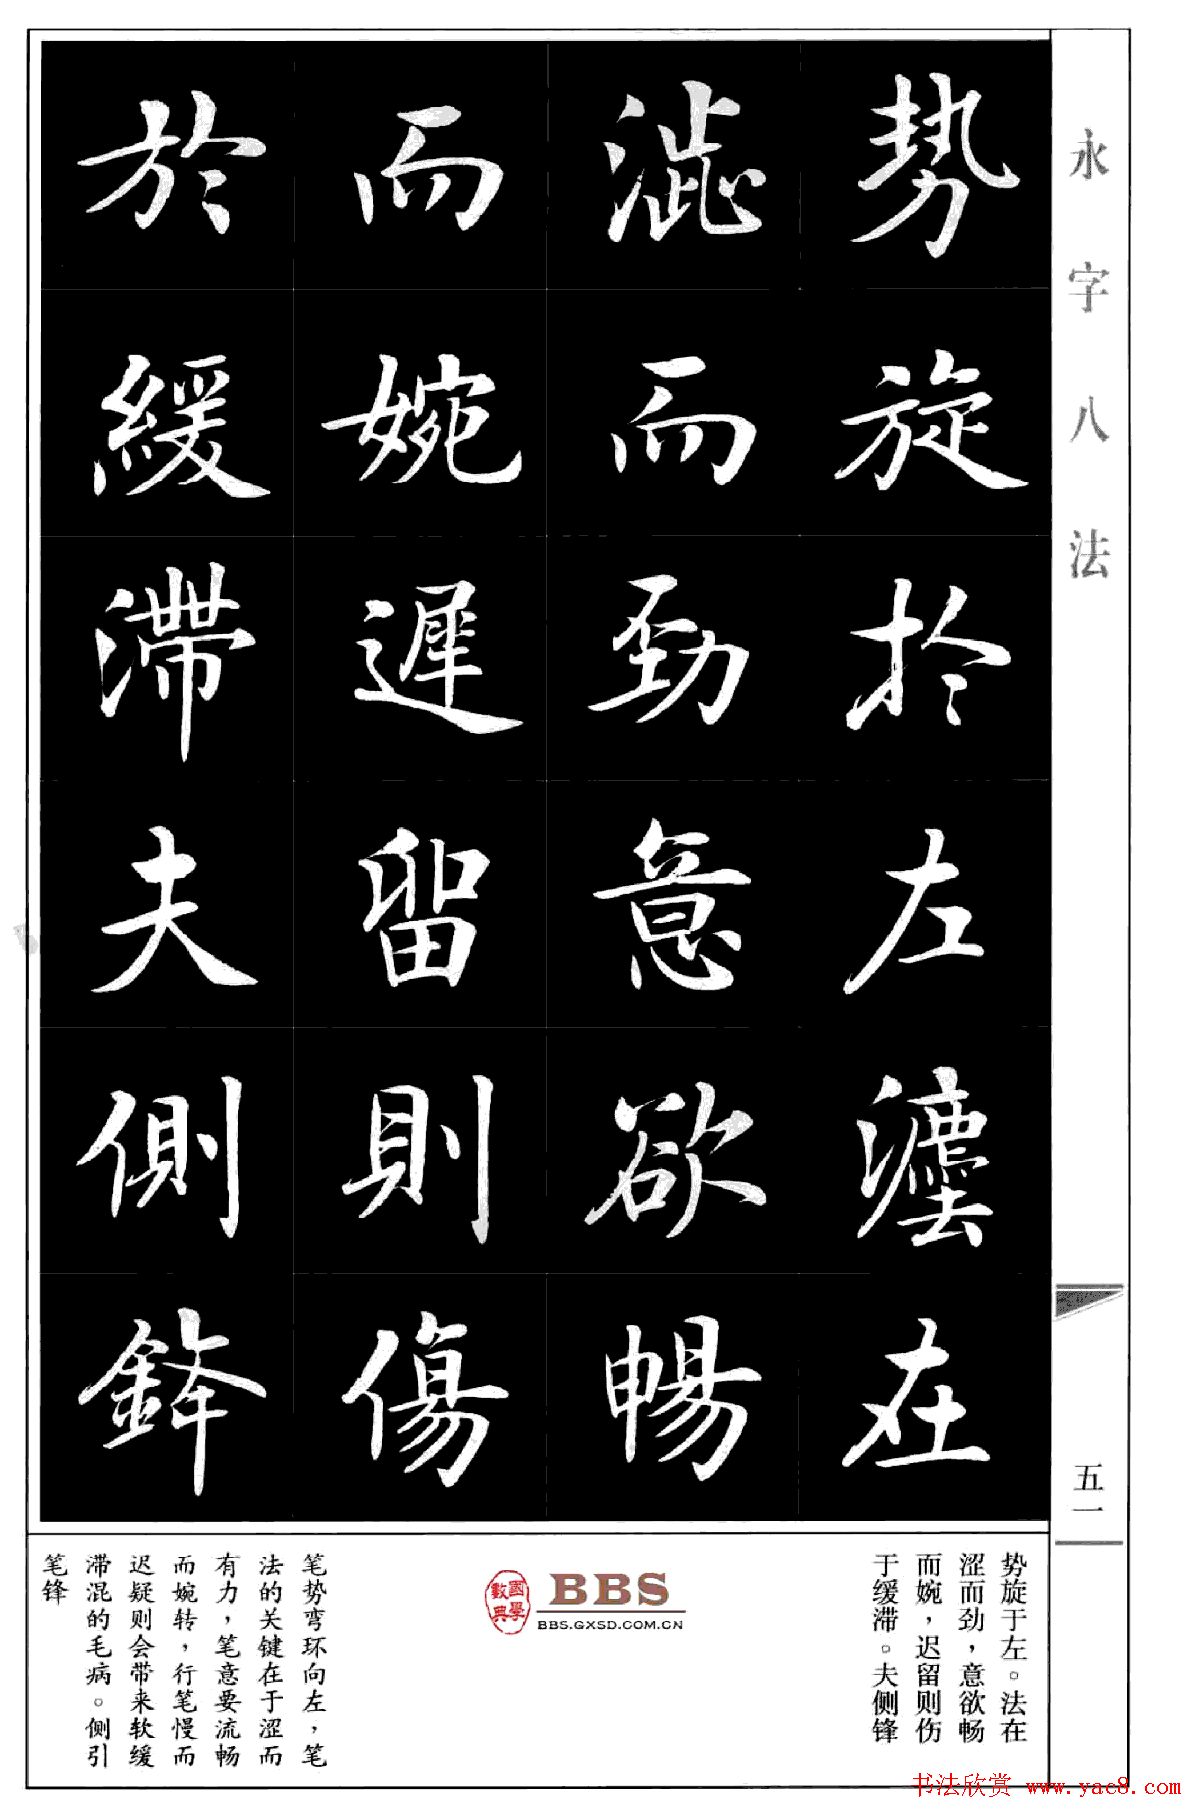 永字八法
势旋於左灋在
澁而劲意欲暢
而婉遲留則傷
於緩滯夫側鋒
五一
势旋于左。法在
涩而劲，意欲畅
而婉，迟留则伤
于缓滞。夫侧锋
國學
數典
BBS
BBS.GXSD.COM.CN
笔势弯环向左，笔
法的关键在于涩而
有力，笔意要流畅
而婉转，行笔慢而
迟疑则会带来软缓
滞混的毛病。侧引
笔锋
书法欣赏 www.yac8.com